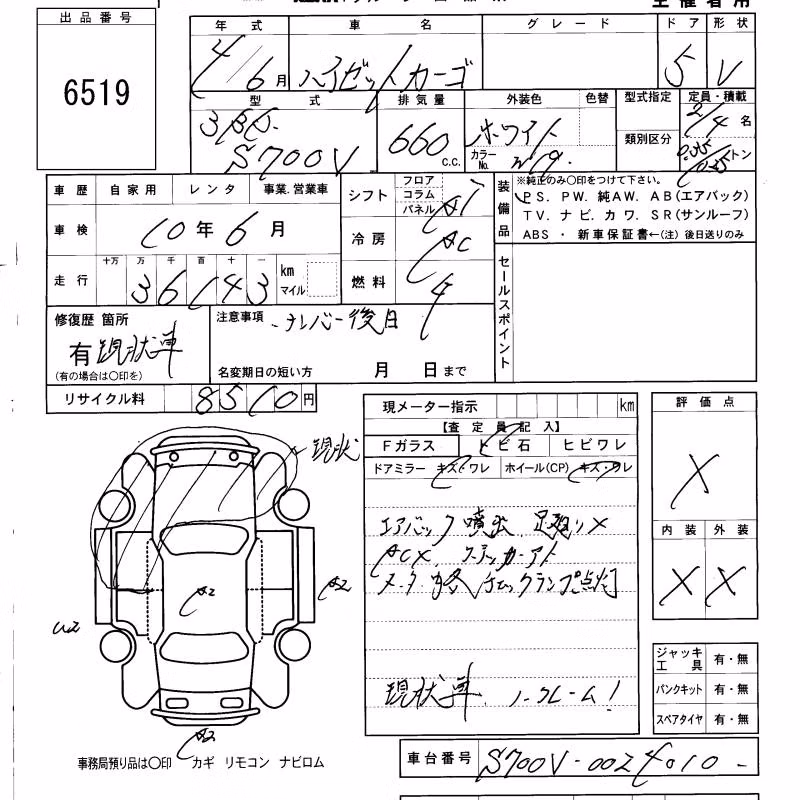 出品番号
6519
年式 車名 グレード ドア 形状
4/6月 ハイゼットカーゴ 5 V
型式 排気量 外装色 色替 型式指定 定員・積載
3BD- S700V 660 c.c. ホワイト カラーNo. W19 類別区分 2/4名
トン
車歴 自家用 レンタ 事業.営業車
車検 10年6月
走行 十万 万 千 百 十 一 km マイル
36143
シフト フロア コラム パネル AT
冷房 AC
燃料
装備品 ※純正のみ〇印をつけて下さい。
PS. PW. 純AW. AB(エアバック)
TV. ナビ. カワ. SR(サンルーフ)
ABS ・ 新車保証書←(注)後日送りのみ
セールスポイント
修復歴 箇所
有 現状車
(有の場合は〇印を)
注意事項 ナンバー後日
名変期日の短い方 月 日まで
リサイクル料 8510円
現メーター指示 km
【査定員記入】
Fガラス ヒビ石 ヒビワレ
ドアミラー キズ・ワレ ホイール(CP) キズ・ワレ
エアバック噴出 足廻り×
ACX. ステッカーアト
メーター内各チェックランプ点灯
現状車. ノークレーム!
評価点
X
内装 外装
X X
ジャッキ工具 有・無
パンクキット 有・無
スペアタイヤ 有・無
現状
A2
A2
U2
A2
事務局預り品は〇印 カギ リモコン ナビロム
車台番号 S700V-0024010-